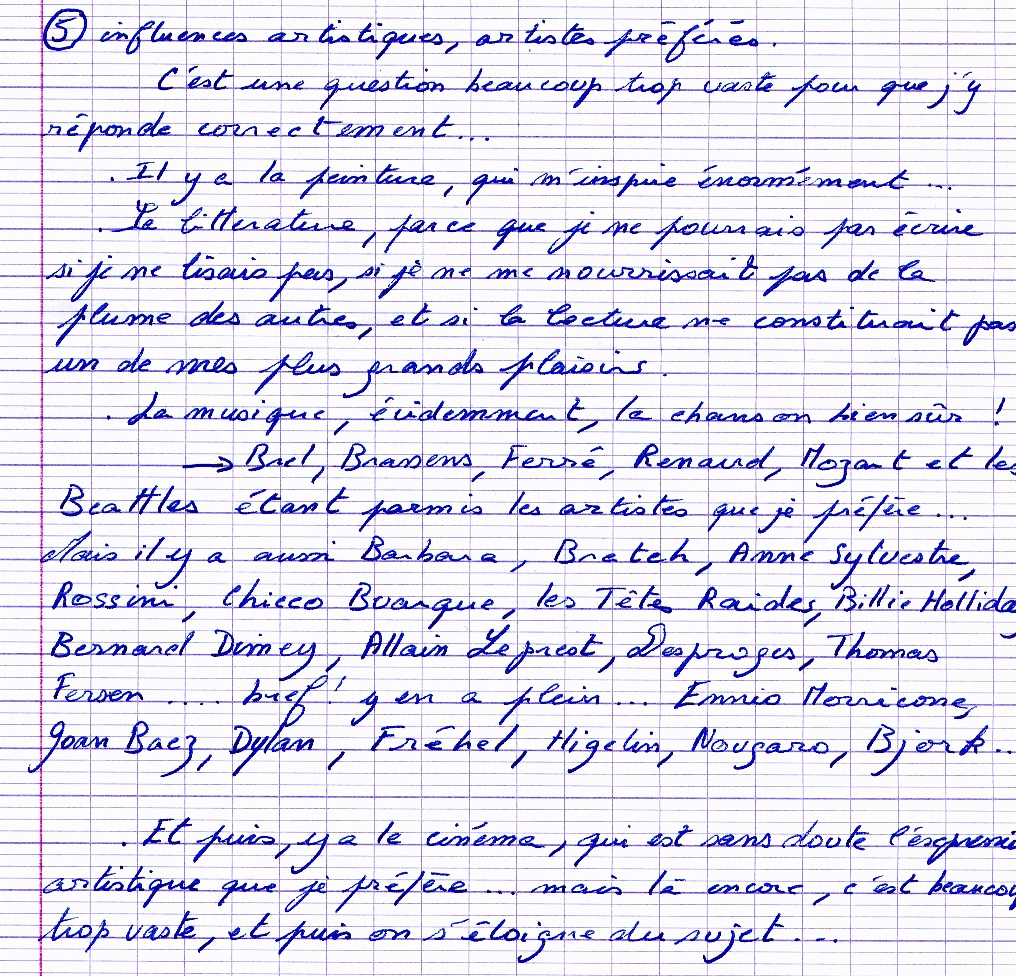 ⑤ influences artistiques, artistes préférés.
C'est une question beaucoup trop vaste pour que j'y
réponde correctement...
. Il y a la peinture, qui m'inspire énormément ...
. La litterature, parce que je ne pourrais pas écrire
si je ne lisais pas, si je ne me nourrissait pas de la
plume des autres, et si la lecture ne constituait pas
un de mes plus grands plaisirs.
. La musique, évidemment, la chanson bien sûr !
→ Brel, Brassens, Ferré, Renaud, Mozart et les
Beattles étant parmis les artistes que je préfère ...
Mais il y a aussi Barbara, Bratch, Anne Sylvestre,
Rossini, Chicco Buarque, les Têtes Raides, Billie Holliday
Bernard Dimey, Allain Leprest, Desproges, Thomas
Fersen .... bref ! y en a plein ... Ennio Morricone,
Joan Baez, Dylan, Fréhel, Higelin, Nougaro, Bjork ...
. Et puis, y a le cinéma, qui est sans doute l'expressi
artistique que je préfère ... mais là encore, c'est beaucoup
trop vaste, et puis on s'éloigne du sujet ...